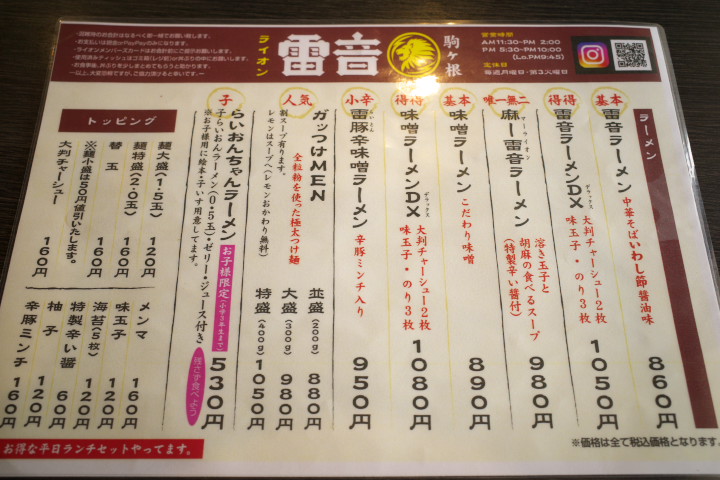 ・混雑時のお会計はなるべく統一様でお願い致します。
・お支払いは現金orPayPayのみになります。
・ライオンメンバーズカードはお会計前にご提示お願いします。
ライオン
雷音
駒ヶ根
営業時間
AM11:30-PM 2:00
PM 5:30-PM10:00
(Lo.PM9:45)
定休日
毎週月曜日・第3火曜日
ラーメン
基本
雷音ラーメン 中華そばいわし節醤油味
860円
得得
雷音ラーメンDX
デラックス
大判チャーシュー2枚
味玉子・のり3枚
1050円
唯一無二
麻ー雷音ラーメン
マーライオン
溶き玉子と
胡麻の食べるスープ
(特製辛い醤付)
980円
基本
味噌ラーメン こだわり味噌
890円
得得
味噌ラーメンDX
デラックス
大判チャーシュー2枚
味玉子・のり3枚
1080円
小辛
雷豚辛味噌ラーメン 辛豚ミンチ入り
950円
人気
ガッつけMEN
全粒粉を使った極太つけ麺
割スープ有ります。
レモンはスープへ(レモンおかわり無料)
並盛(200g) 880円
大盛(300g) 980円
特盛(400g) 1050円
子
らいおんちゃんラーメン
子らいおんラーメン(0・5玉)・ゼリー・ジュース付き
※お子様用に絵本・子いす用意してます。
お子様限定(小学3年生まで)
残さず食べよう
530円
トッピング
麺大盛(1・5玉) 120円
麺特盛(2・0玉) 160円
替玉 160円
※麺小盛は50円値引いたします。
大判チャーシュー 160円
メンマ 160円
味玉子 120円
海苔(5枚) 120円
特製辛い醤 60円
柚子 120円
辛豚ミンチ 160円
お得な平日ランチセットやってます。
※価格は全て税込価格となります。